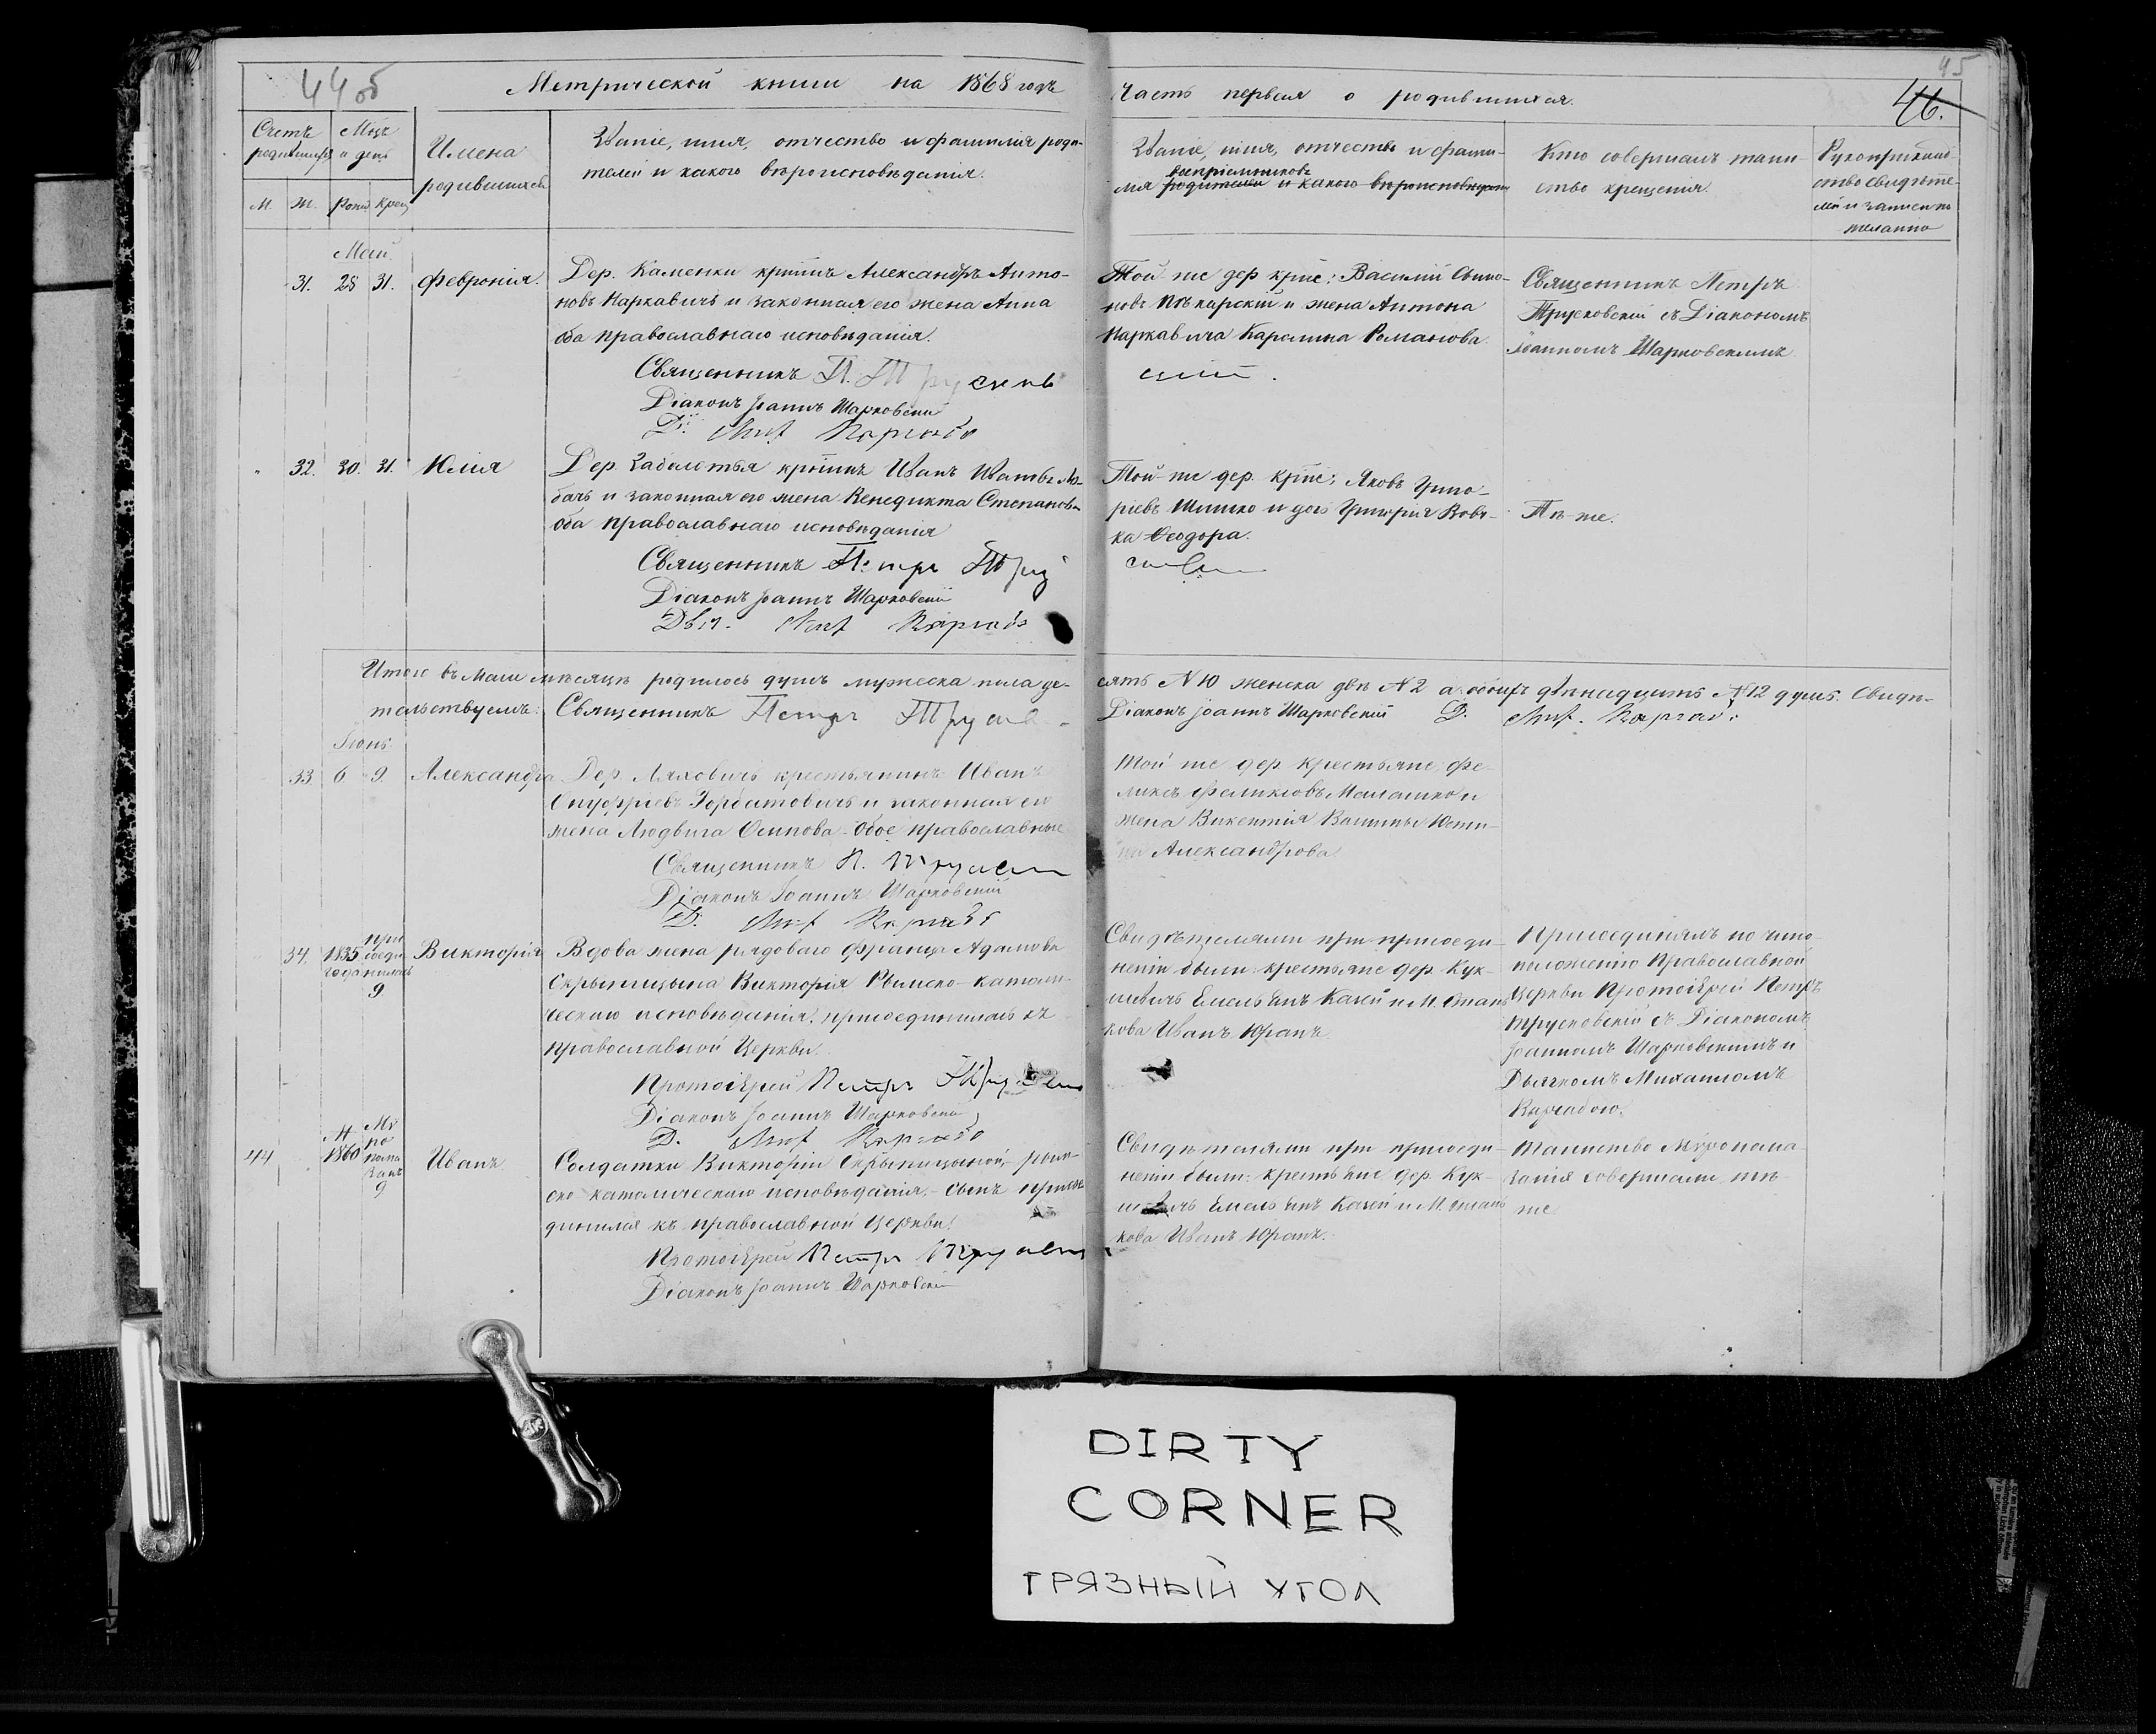 44 об
Метрической книги на 1868 годъ
Часть первая о родившихся.
45
46.
Счетъ родившихся
Мцъ и день
М. Ж. Рожд. Крещ.
Имена
родившихся
Званіе, имя, отчество и фамилія роди-
телей и какого вѣроисповѣданія.
Званіе, имя, отчество и фами-
воспріемниковъ
лія родителей и какого вѣроисповѣданія
Кто совершалъ таин-
ство крещенія.
Рукоприклад-
ство свидѣте-
лей и записи по
желанію
Май.
31. 28 31. Февронія.
Дер. Каменки крѣшнъ Александръ Анто-
новъ Каркавичъ и законная его жена Анна
оба православнаго исповѣданія.
Священникъ П. Труск
Діаконъ Іоаннъ Шарковскій
Той же дер крѣс:
Василій
и жена Антона
Каркавича Каролина Романова.
Священникъ Петръ
Трусковскій съ Діакономъ
Іоанномъ Шарковскимъ
32. 30. 31. Юлія
Дер. Заболотья крѣшнъ Иванъ
и законная его жена Венедикта Степанова
оба православнаго исповѣданія
Священникъ Петръ
Діаконъ Іоаннъ Шарковскій
Той-же дер. крѣс: Яковъ Григо-
ріевъ Шишко и дочь Григорія
Ѳеодора.
Тѣ-же.
Итого въ маѣ мѣсяцѣ родилось душъ мужеска пола де-
сять N 10 женска двѣ N 2 а обоихъ двѣнадцать N 12 душъ. Свидѣ-
тельствуемъ: Священникъ Петръ
Діаконъ Іоаннъ Шарковскій Д.
Іюнь.
33 6 9. Александра
Дер. Ляховичъ крестьянинъ Иванъ
Онуфріевъ Горбатовичъ и законная его
жена Людвига Осипова обое православные
Священникъ П.
Діаконъ Іоаннъ Шарковскій
Д.
Той же дер крестьяне: Фе-
ликсъ Феликсовъ Малашко и
жена Викентія
Александрова.
34. 1835 года присоединилась 9
Викторія
Вдова жена рядоваго Франца Адамова
Скрыпицына Викторія Римско-католи-
ческаго исповѣданія, присоединилась къ
православной Церкви.
Протоіерей Петръ
Діаконъ Іоаннъ Шарковскій
Д.
Свидѣтелями при присоеди-
неніи были: крестьяне дер. Кук-
Емельянъ Казей и М.
Иванъ Юранъ.
Присоединялъ по чино
положенію Православной
Церкви Протоіерей Петръ
Трусковскій съ Діакономъ
Іоанномъ Шарковскимъ и
Дьячкомъ Михаиломъ
44 1860 9
Иванъ
Солдатки Викторіи Скрыпицыной, рим-
ско католическаго исповѣданія, - сынъ присое-
динился къ православной Церкви.
Протоіерей Петръ
Діаконъ Іоаннъ Шарковскій
Свидѣтелями при присоеди-
неніи были: крестьяне дер. Кук-
Емельянъ Казей и М.
Иванъ Юранъ.
Таинство Мѵропома-
занія совершали тѣ-
же
DIRTY
CORNER
ГРЯЗНЫЙ УГОЛ